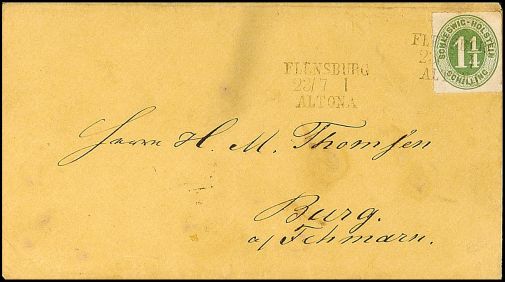 FLENSBURG
23/7 1
ALTONA
SCHLESWIG-HOLSTEIN
1¼
Herrn H. M. Thomsen
Burg.
a/ Fehmarn.